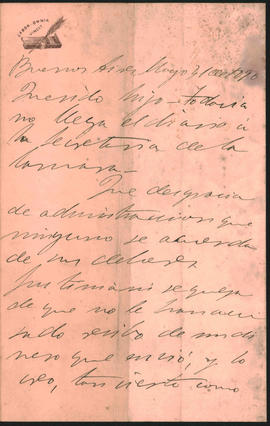 LABOR OMNIA VINCIT
Buenos Aires, Mayo 31 de 1890
Querido hijo - Todavia
no llega el diario á
la Secretaria de la
Camara -
Que desgracia
de administracion que
ninguno se acuerda
de sus deberes
se queja
de que no le han
do recibo de un di
nero que envió, y lo
creo, tan cierto como